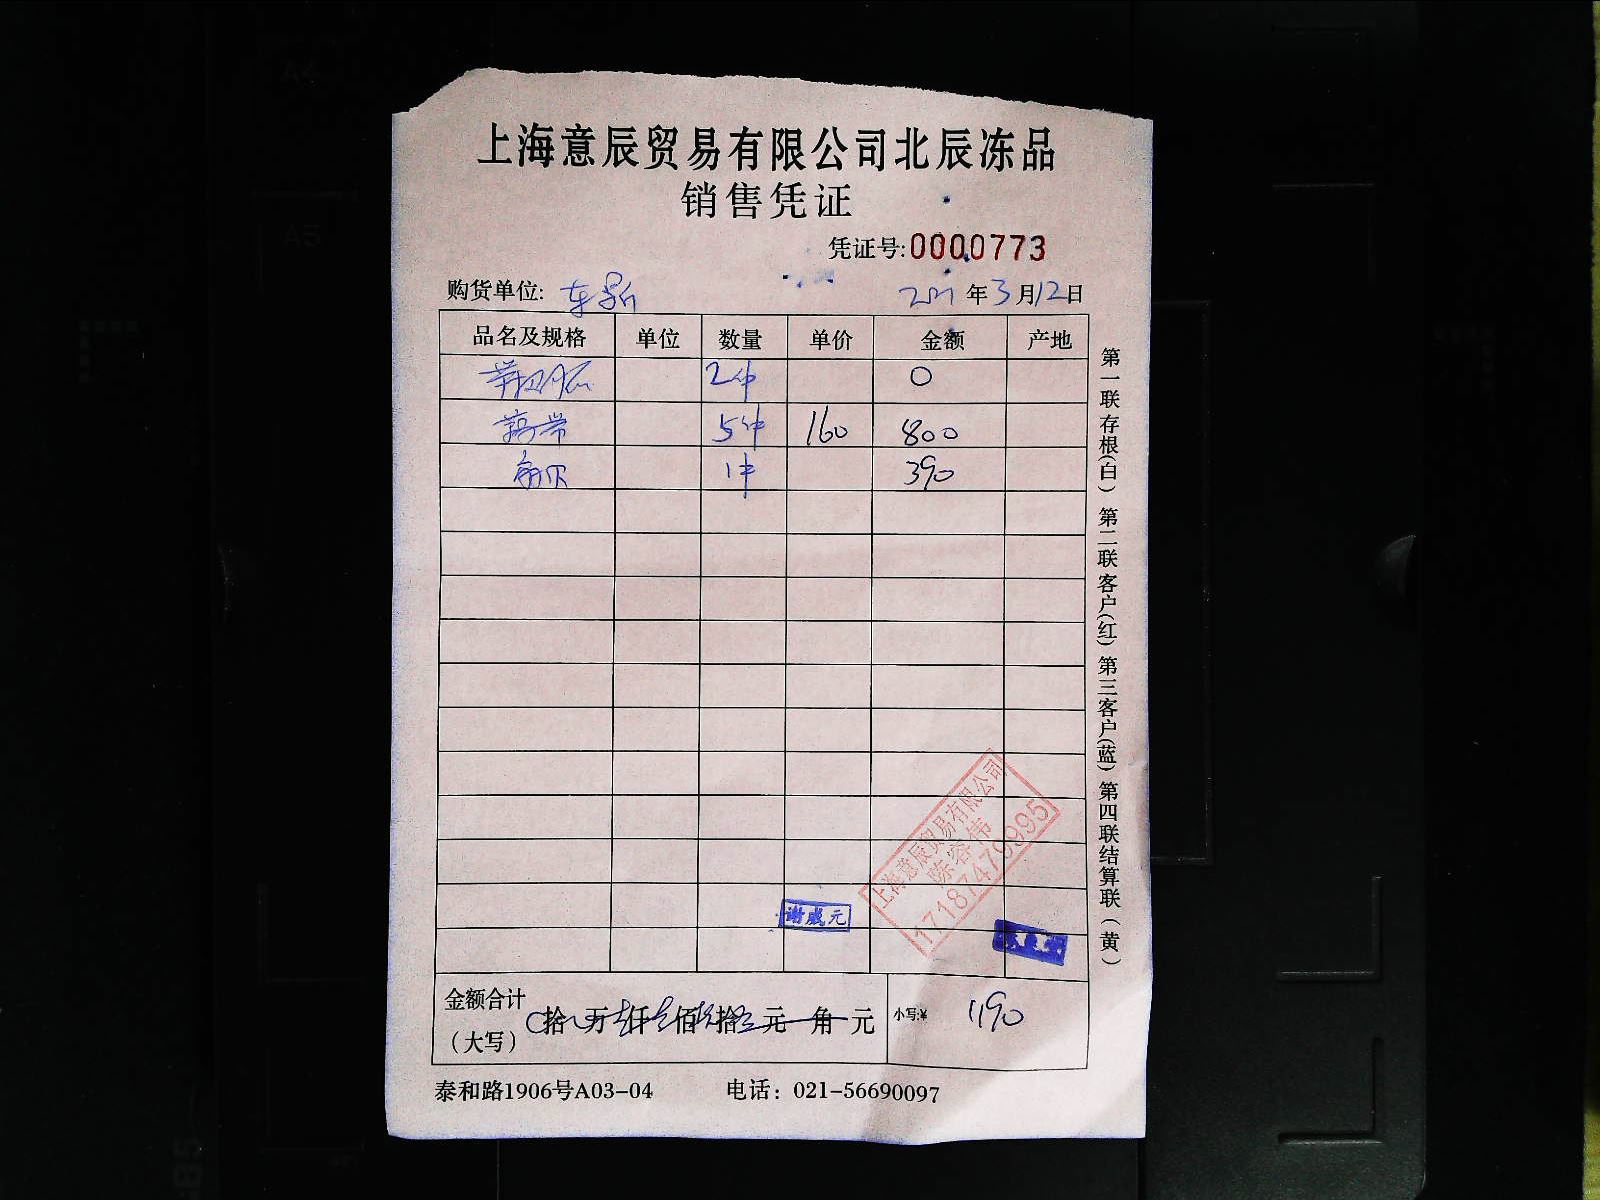 上海意辰贸易有限公司北辰冻品
销售凭证
凭证号:0000773
购货单位: 2021年3月12日
品名及规格 单位 数量 单价 金额 产地
2件 0
5件 160 800
1件 390
上海意辰贸易有限公司
陈容伟
17187479995
谢成元
金额合计
(大写) 拾 万 仟 佰 拾 元 角 元 小写:¥ 1190
泰和路1906号A03-04 电话: 021-56690097
第一联存根(白) 第二联客户(红) 第三客户(蓝) 第四联结算联(黄)